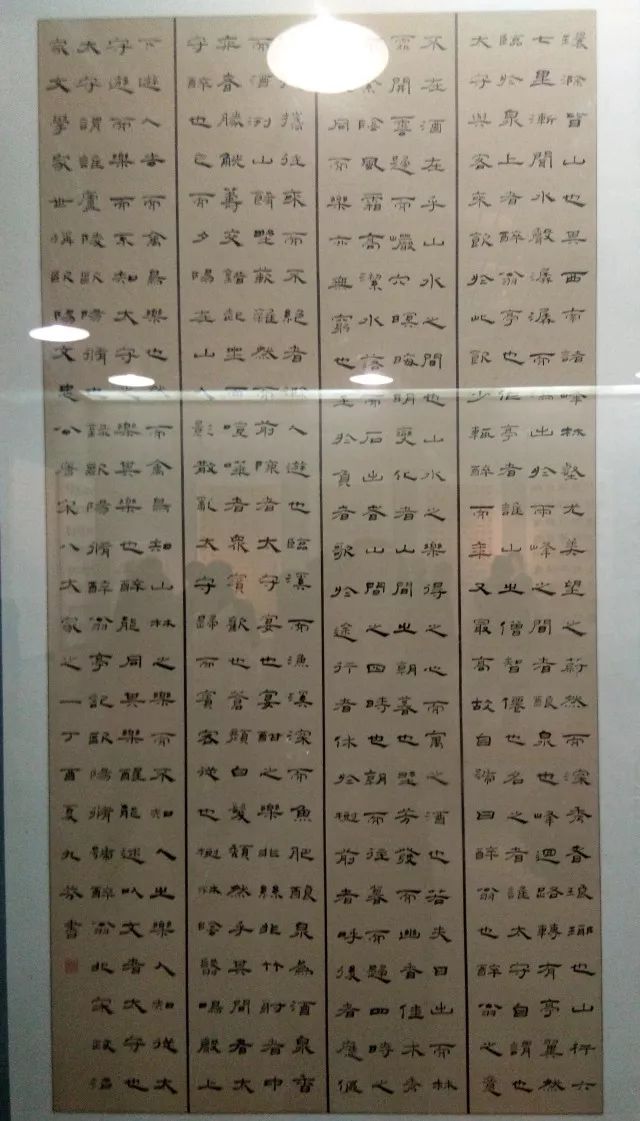 環滁皆山也其西南諸峰林壑尤美望之蔚然而深秀者琅琊也山行六
七里漸聞水聲潺潺而瀉出於兩峰之間者釀泉也峰迴路轉有亭翼然
臨於泉上者醉翁亭也作亭者誰山之僧智僊也名之者誰太守自謂也
太守與客來飲於此飲少輒醉而年又最高故自號曰醉翁也醉翁之意
不在酒在乎山水之間也山水之樂得之心而寓之酒也若夫日出而林
霏開雲歸而巖穴暝晦明變化者山間之朝暮也野芳發而幽香佳木秀
繁陰風霜高潔水落而石出者山間之四時也朝而往暮而歸四時之
同而樂亦無窮也至於負者歌於途行者休於樹前者呼後者應傴
攜往來而不絕者滁人遊也臨溪而漁溪深而魚肥釀泉為酒泉香
而酒洌山餚野蔌雜然而前陳者太守宴也宴酣之樂非絲非竹射者中
弈者勝觥籌交錯起坐而喧嘩者眾賓歡也蒼顏白髮頹然乎其間者太
守醉也已而夕陽在山人影散亂太守歸而賓客從也樹林陰翳鳴聲上
下遊人去而禽鳥樂也然而禽鳥知山林之樂而不知人之樂人知從太
守遊而樂而不知太守之樂其樂也醉能同其樂醒能述以文者太守也
太守謂誰廬陵歐陽脩也錄歐陽脩醉翁亭記歐陽脩號醉翁北宋政治
家文學家世稱歐陽文忠公唐宋八大家之一丁酉夏九芬書